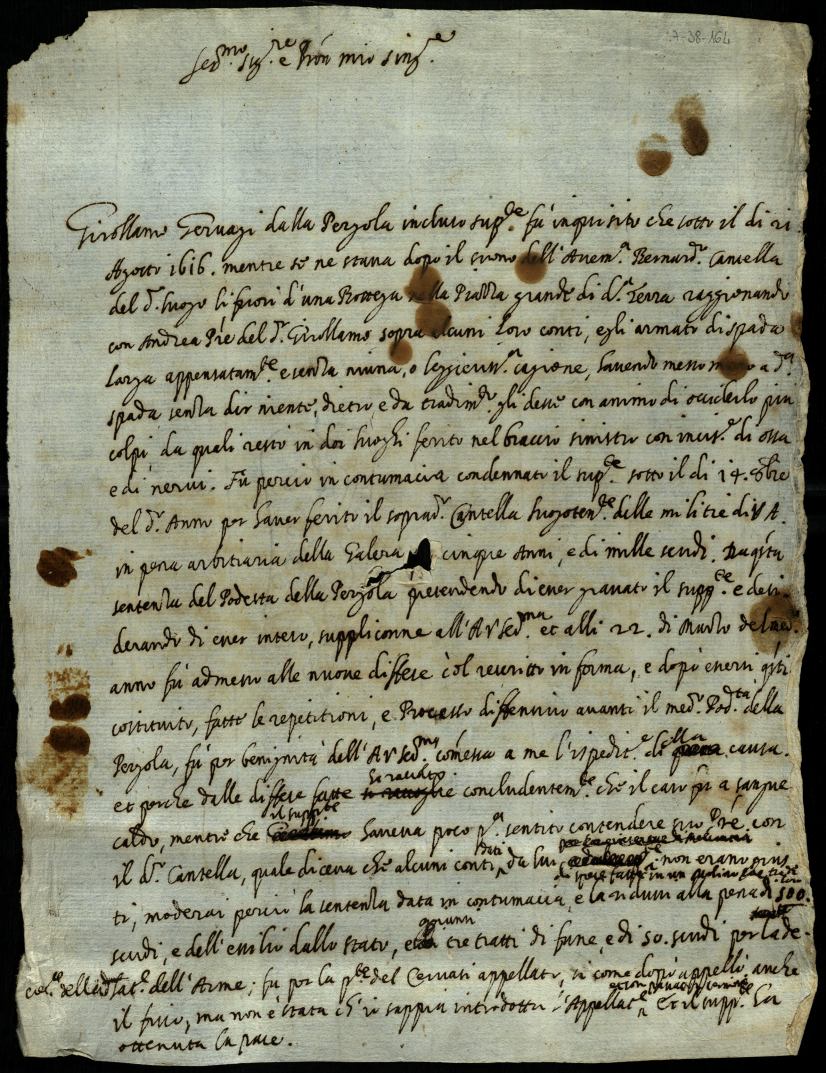 A-38-164
Ser.mo Sig.re e Pron mio sing.re
Girollamo Gervagi dalla Pergola incluso sup.te fù inquisito che sotto il di 21
Agosto 1616. mentre se ne stava dopo il suono dell'Avem.a Bernard.o Cantella
del d.o luogo li fuori d'una Bottega nella Piazza grande di d.a Terra raggionando
con Andrea Prè del d.o Girollamo sopra alcuni loro conti, egli armato di spada
larga appensatam.te e senza niuna, o leggieriss.a cagione, havendo messo mano a d.a
spada senza dir niente, dietro, e da tradim.to gli desse con animo di occiderlo piu
colpi, da quali restò in doi luoghi ferito nel braccio sinistro con incis.e di ossa
e di nervi. Fù perciò in contumacia condennato il sup.te sotto il di 14. 8bre
del d.o Anno per haver ferito il soprad.o Cantella luogoten.te delle militie di V A.
in pena arbitraria della Galera cinque Anni, e di mille scudi. Da q̃sta
sentenza del Podestà della Pergola pretendendo di esser gravato il supp.te e desi-
derando di esser inteso, suppliconne all'A V Ser.ma et alli 22. di Marzo del med.o
anno fù admesso alle nuove diffese col rescritto in forma, e dopò essersi q̃sti
costituito, fatte le repetitioni, e Processo diffensivo avanti il med.o Pod.tà della
Pergola, fù per benignità dell'A V Ser.ma com̃essa a me l'ispedit.e di lla causa.
et perche dalle diffese fatte ha cavato concludentem.te che il caso fù a sangue
caldo, mentre che il supp.te haveva poco p.a sentito contendere suo Prè con
il d.o Cantella, quale diceva che alcuni conti dati da lui non erano gius
ti, moderai perciò la sentenza data in contumacia, e la ridussi alla pena di 100.
scudi, e dell'essilio dallo stato, e giunsi tre tratti di fune, e di 50. scudi per la de-
lat.e dell'Arme; fù per la p.te del Cervasi appellato, si come dopò appellò anche
il fisco, ma non è stata ch'io sappia introdotta l'Appellat.e Et il supp.te ha
ottenuta la pace.